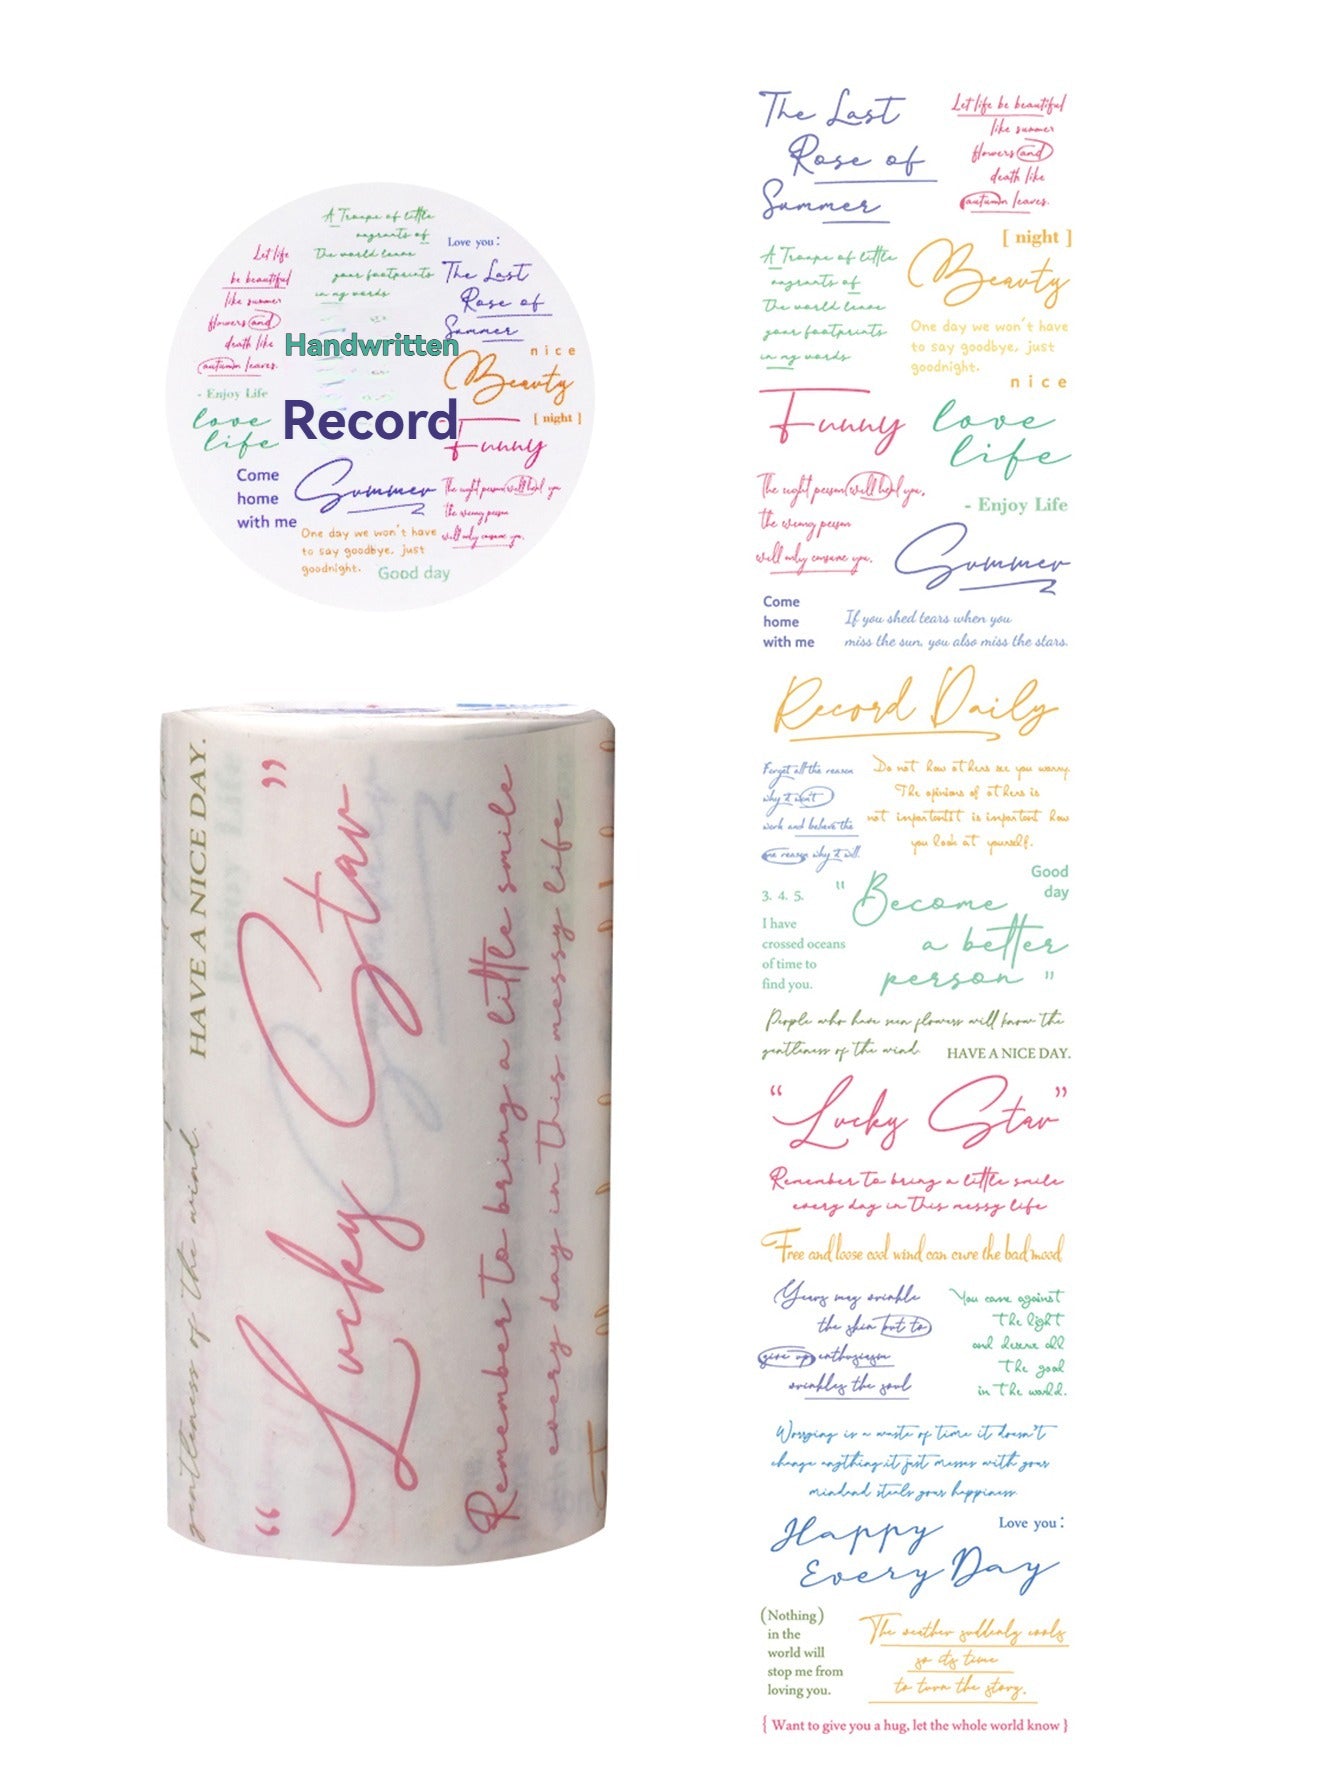 A Troupe of little
vagrants of
The world leave
your footprints
in my words
Let life
be beautiful
like summer
flowers and
death like
autumn leaves.
Love you:
The Last
Rose of
Summer
Handwritten
nice
Beauty
- Enjoy Life
love
life
Record
[ night ]
Funny
Come
home
with me
Summer
The right person will heal you,
the wrong person
will only consume you.
One day we won't have
to say goodbye, just
goodnight.
Good day
gentleness of the wind.
HAVE A NICE DAY.
“Lucky Star”
Remember to bring a little smile
every day in this messy life
The Last
Rose of
Summer
Let life be beautiful
like summer
flowers and
death like
autumn leaves.
[ night ]
A Troupe of little
vagrants of
The world leave
your footprints
in my words
Beauty
One day we won't have
to say goodbye, just
goodnight.
nice
Funny
love
life
The right person will heal you,
the wrong person
will only consume you.
- Enjoy Life
Summer
Come
home
with me
If you shed tears when you
miss the sun, you also miss the stars.
Record Daily
Forget all the reason
why it won't
work and believe the
one reason why it will.
Do not how others see you worry.
The opinions of others is
not importantst is important how
you look at yourself.
Good
day
3. 4. 5.
I have
crossed oceans
of time to
find you.
"Become
a better
person"
People who have seen flowers will know the
gentleness of the wind.
HAVE A NICE DAY.
“Lucky Star”
Remember to bring a little smile
every day in this messy life
Free and loose cool wind can cure the bad mood
Years may wrinkle
the skin but to
give up enthusiasm
wrinkles the soul
You came against
the light
and deserve all
the good
in the world.
Worrying is a waste of time it doesn't
change anything.it just messes with your
mindand steals your happiness.
Happy
Every Day
Love you:
(Nothing)
in the
world will
stop me from
loving you.
The weather suddenly cools
so its time
to turn the story.
{ Want to give you a hug, let the whole world know }